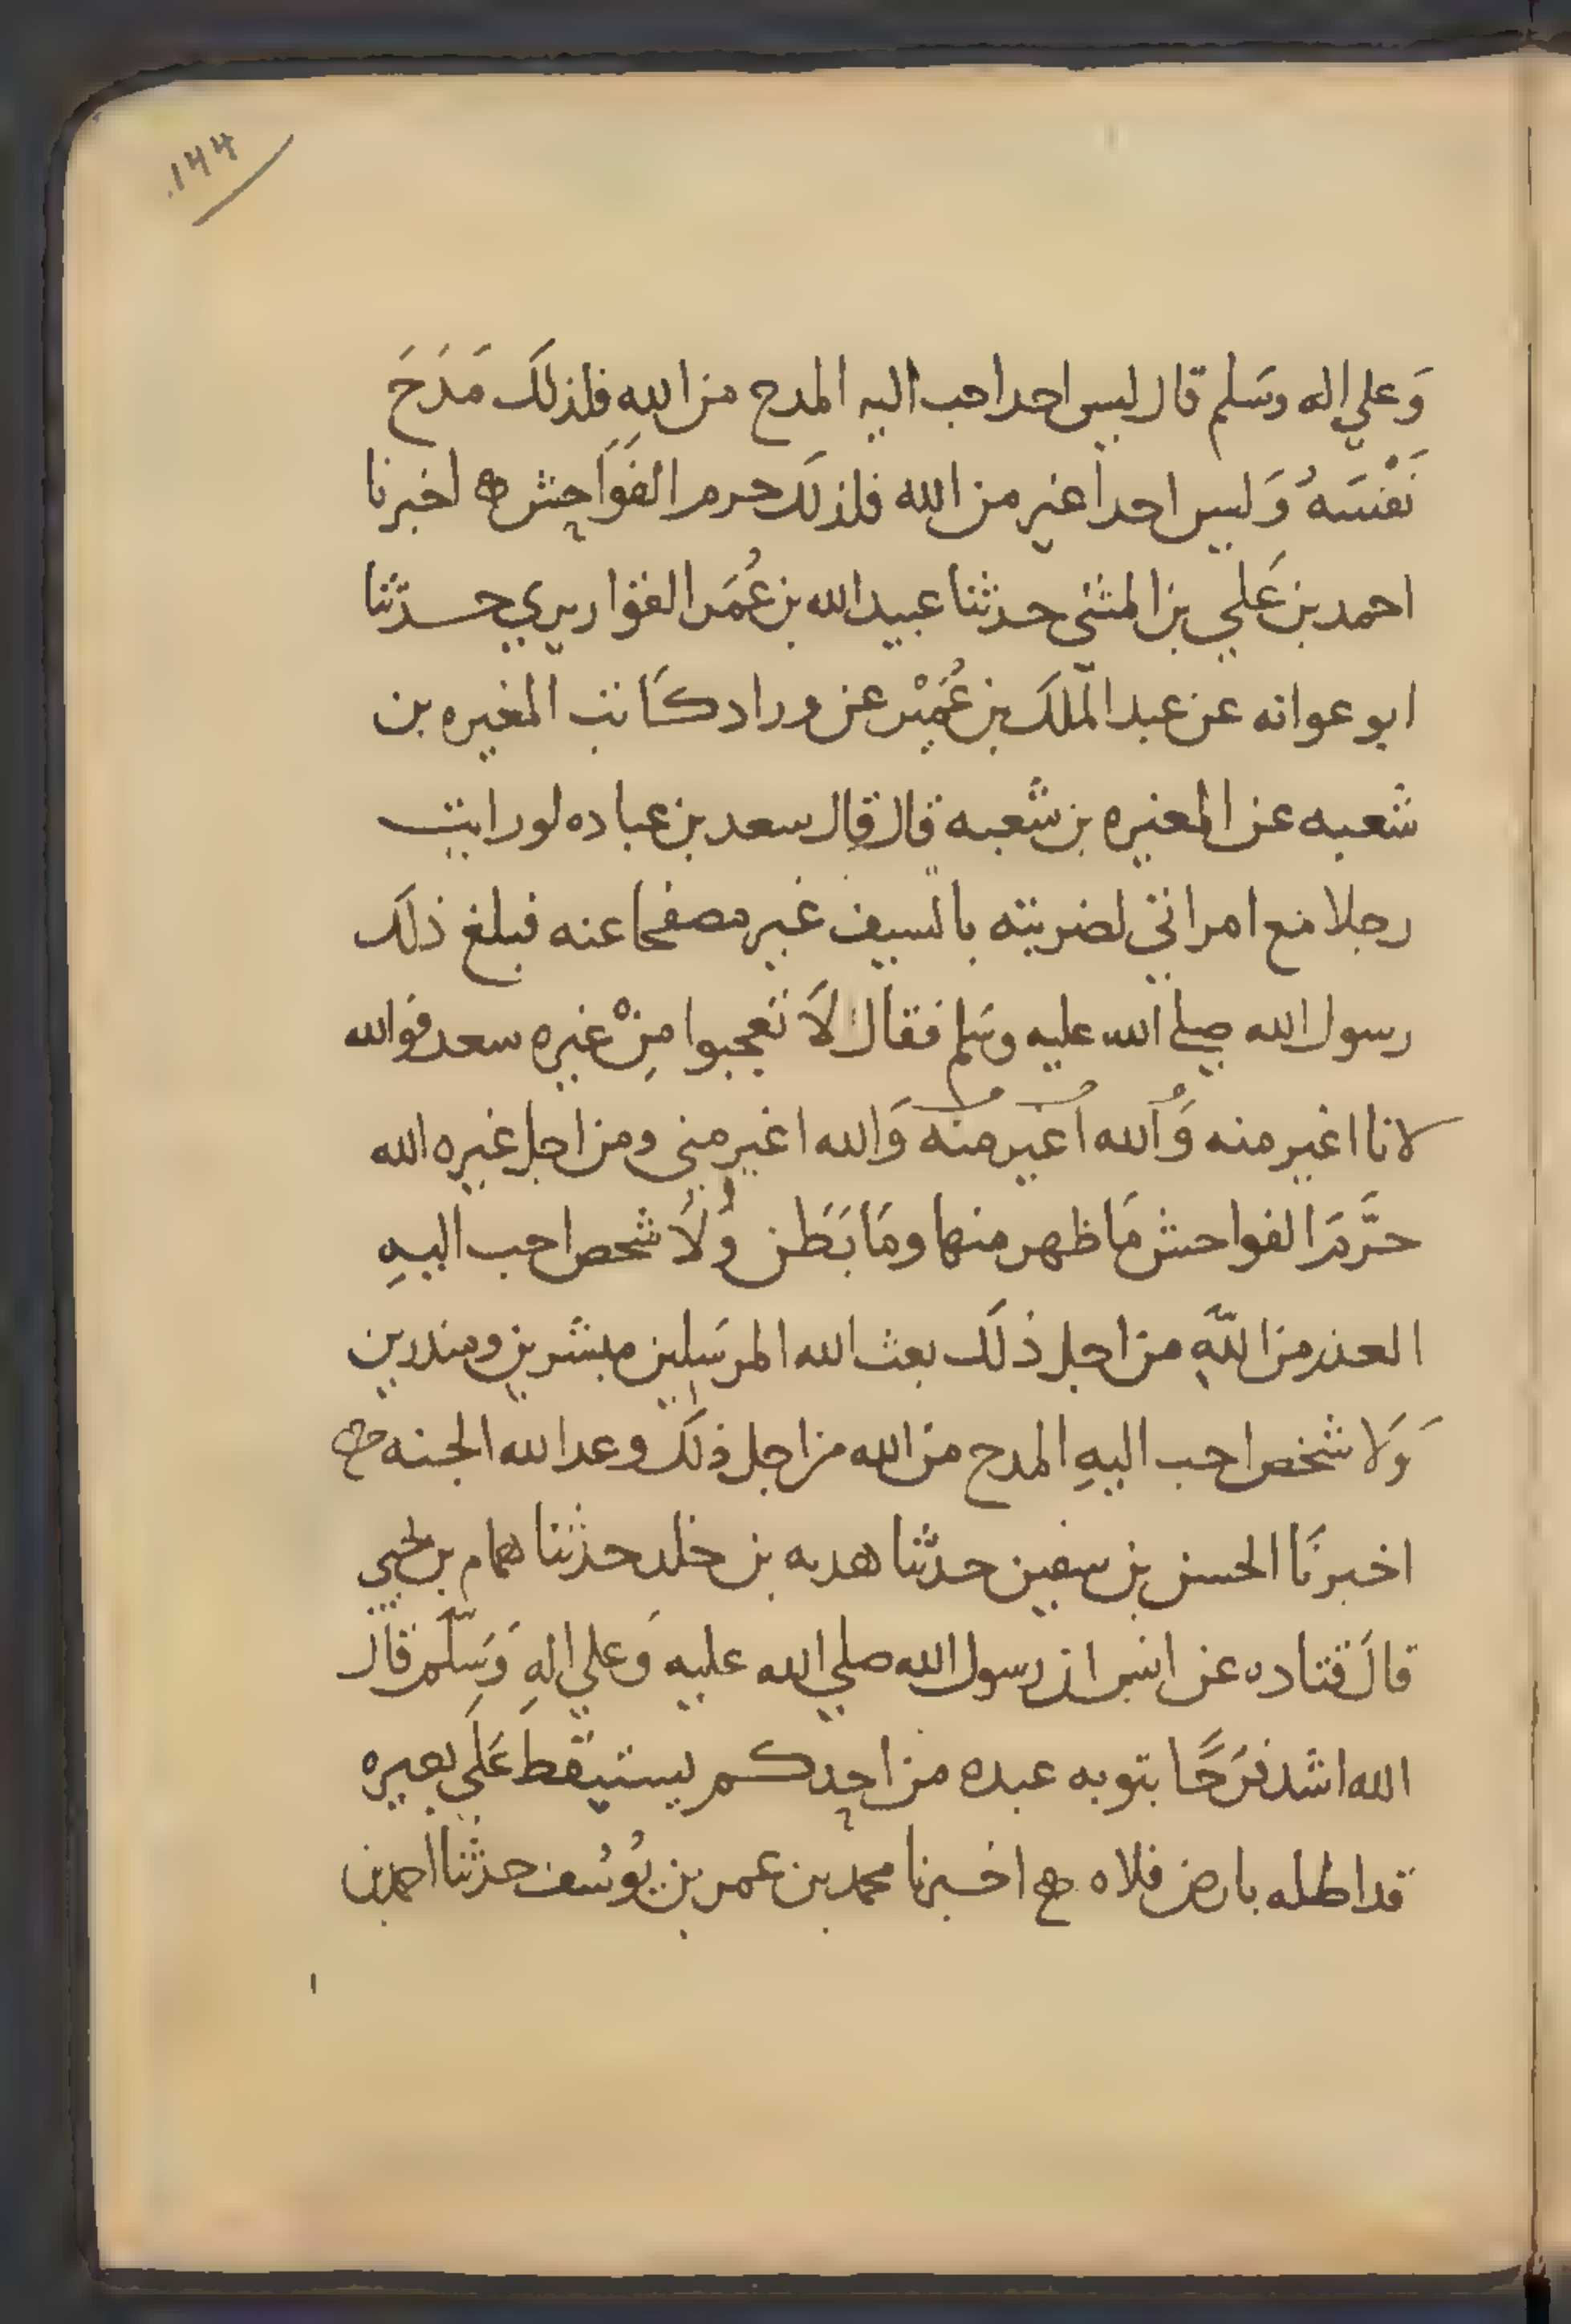 ١٤٤
وَعلي اله وسَلم قال ليس احد احب اليه المدح من اللهِ فلذلكَ مَدَحَ
نَفْسَهُ وَليس احداً اغير من الله فلذلكَ حرم الفَوَاحِش ه اخبرنا
احمد بن عَلي بن المثنى حدثنا عبيد الله بن عُمَر القواريري حدثنا
ابو عوانه عن عبد الملكَ بن عُمَيْر عن وراد كَاتب المغيره بن
شعبه عن المغيره بن شعبه قال قال سعد بن عباده لو رايت
رجلا مع امراتي لضربته بالسيف غير مصفحا عنه فبلغ ذلكَ
رسول الله صلي الله عليه وسَلم فقال لَا تعجبوا مِنْ غيره سعد فوالله
لانا اغير منه وَالله اغير منه وَالله اغير مني ومن اجل غيره الله
حرَّمَ الفواحش مَا ظهر منها ومَا بَطَن وَلَا شخص احب اليهِ
العذر من اللَّهِ من اجل ذلكَ بعث الله المرسَلين مبشرين ومنذرين
وَلا شخص احب اليهِ المدح من الله من اجل ذلكَ وعد الله الجنه ه
اخبرنَا الحسن بن سفين حدثنا هدبه بن خلد حدثنا همام بن يحيي
قالَ قتاده عن انس ان رسول الله صلي الله عليه وَعلي الهِ وَسَلَّم قال
الله اشد فرَحًا بتوبه عبده من احدكم يستيقظ عَلَي بعيره
قد اظله بارض فلاه ه اخبرنا محمد بن عمر بن يُوسُف حدثنا احمد بن